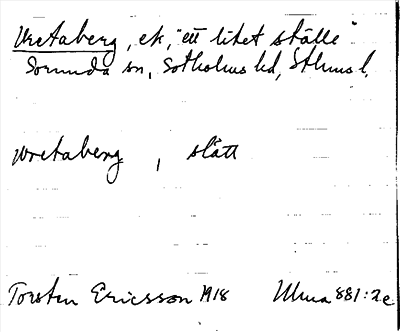 Vretaberg, ek, "ett litet ställe"
Sorunda sn, Sotholms hd, Sthms l.
vretaberg, slått
Torsten Ericsson 1918 Ulma 881:2e